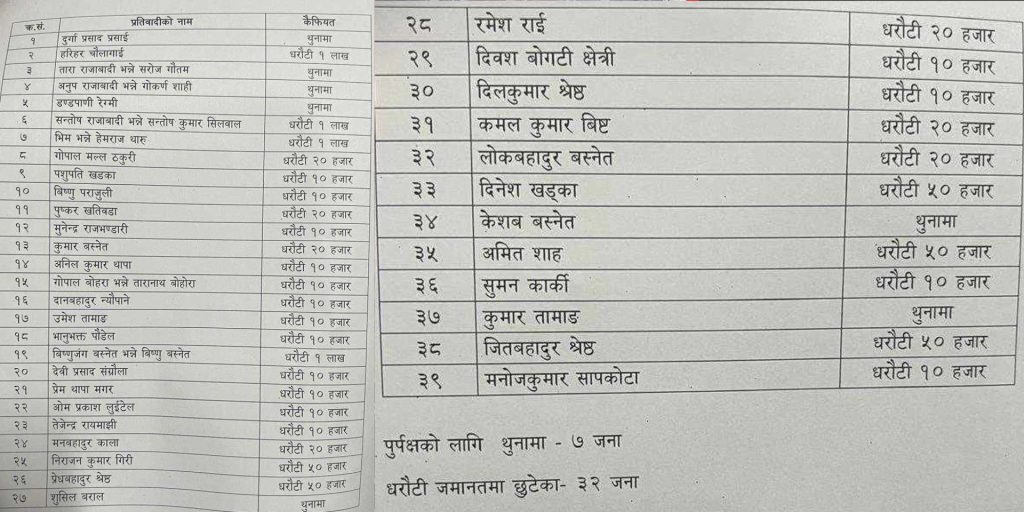 क्र.सं. प्रतिवादीको नाम कैफियत
१ दुर्गा प्रसाद प्रसाई थुनामा
२ हरिहर चौलागाई धरौटी १ लाख
३ तारा राजाबादी भन्ने सरोज गौतम थुनामा
४ अनुप राजाबादी भन्ने गोकर्ण शाही थुनामा
५ डण्डपाणी रेग्मी थुनामा
६ सन्तोष राजाबादी भन्ने सन्तोष कुमार सिलवाल धरौटी १ लाख
७ भिम भन्ने हेमराज थारु धरौटी १ लाख
८ गोपाल मल्ल ठकुरी धरौटी २० हजार
९ पशुपति खडका धरौटी १० हजार
१० बिष्णु पराजुली धरौटी १० हजार
११ पुष्कर खतिवडा धरौटी २० हजार
१२ मुनेन्द्र राजभण्डारी धरौटी १० हजार
१३ कुमार बस्नेत धरौटी २० हजार
१४ अनिल कुमार थापा धरौटी १० हजार
१५ गोपाल बोहरा भन्ने तारानाथ बोहोरा धरौटी १० हजार
१६ दानबहादुर न्यौपाने धरौटी १० हजार
१७ उमेश तामाङ धरौटी १० हजार
१८ भानुभक्त पौडेल धरौटी १० हजार
१९ बिष्णुजंग बस्नेत भन्ने बिष्णु बस्नेत धरौटी १ लाख
२० देवी प्रसाद संग्रौला धरौटी १० हजार
२१ प्रेम थापा मगर धरौटी १० हजार
२२ ओम प्रकाश लुईटेल धरौटी १० हजार
२३ तेजेन्द्र रायमाझी धरौटी १० हजार
२४ मनबहादुर काला धरौटी २० हजार
२५ निराजन कुमार गिरी धरौटी ५० हजार
२६ प्रेधबहादुर श्रेष्ठ धरौटी ५० हजार
२७ शुसिल बराल थुनामा
२८ रमेश राई धरौटी २० हजार
२९ दिवश बोगटी क्षेत्री धरौटी १० हजार
३० दिलकुमार श्रेष्ठ धरौटी १० हजार
३१ कमल कुमार बिष्ट धरौटी २० हजार
३२ लोकबहादुर बस्नेत धरौटी २० हजार
३३ दिनेश खड्का धरौटी ५० हजार
३४ केशब बस्नेत थुनामा
३५ अमित शाह धरौटी ५० हजार
३६ सुमन कार्की धरौटी १० हजार
३७ कुमार तामाङ थुनामा
३८ जितबहादुर श्रेष्ठ धरौटी ५० हजार
३९ मनोजकुमार सापकोटा धरौटी १० हजार
पुर्पक्षको लागि थुनामा - ७ जना
धरौटी जमानतमा छुटेका- ३२ जना